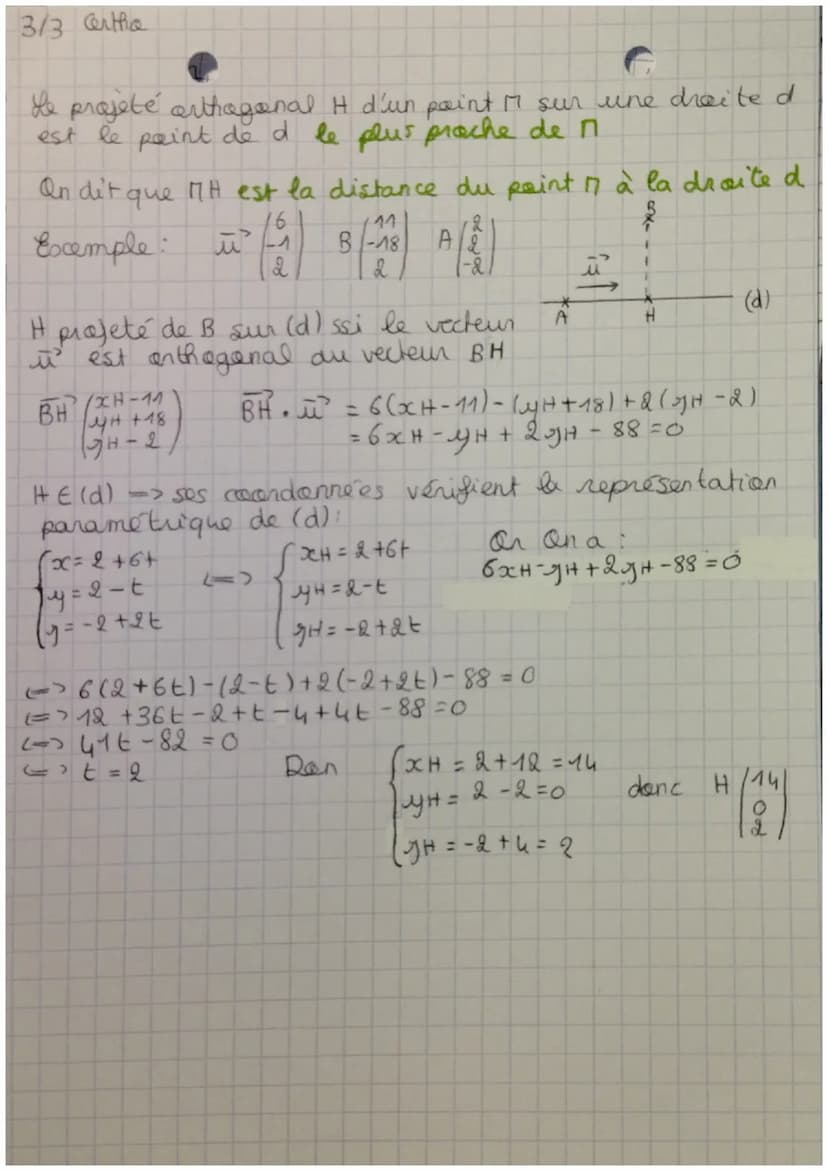 3/3 Ortho
Le projeté orthogonal H d'un point M sur une droite d
est le point de d le plus proche de M
On dit que MH est la distance du point M à la droite d
Exemple : u⃗ (6 -1 2) B (11 -18 2) A (2 2 -2)
B
u⃗
A H (d)
H projeté de B sur (d) ssi le vecteur
u⃗ est orthogonal au vecteur BH
BH⃗ (xH-11 yH+18 zH-2) BH⃗ . u⃗ = 6(xH-11)-(yH+18)+2(zH-2)
= 6xH-yH+2zH-88=0
H∈(d) => ses coordonnées vérifient la représentation
paramétrique de (d):
{x=2+6t <=> {xH=2+6t Or On a :
y=2-t yH=2-t 6xH-yH+2zH-88=0
z=-2+2t zH=-2+2t
<=> 6(2+6t)-(2-t)+2(-2+2t)-88=0
<=> 12+36t-2+t-4+4t-88=0
<=> 41t-82=0
<=> t=2 Don {xH=2+12=14
yH=2-2=0 donc H (14 0 2)
zH=-2+4=2